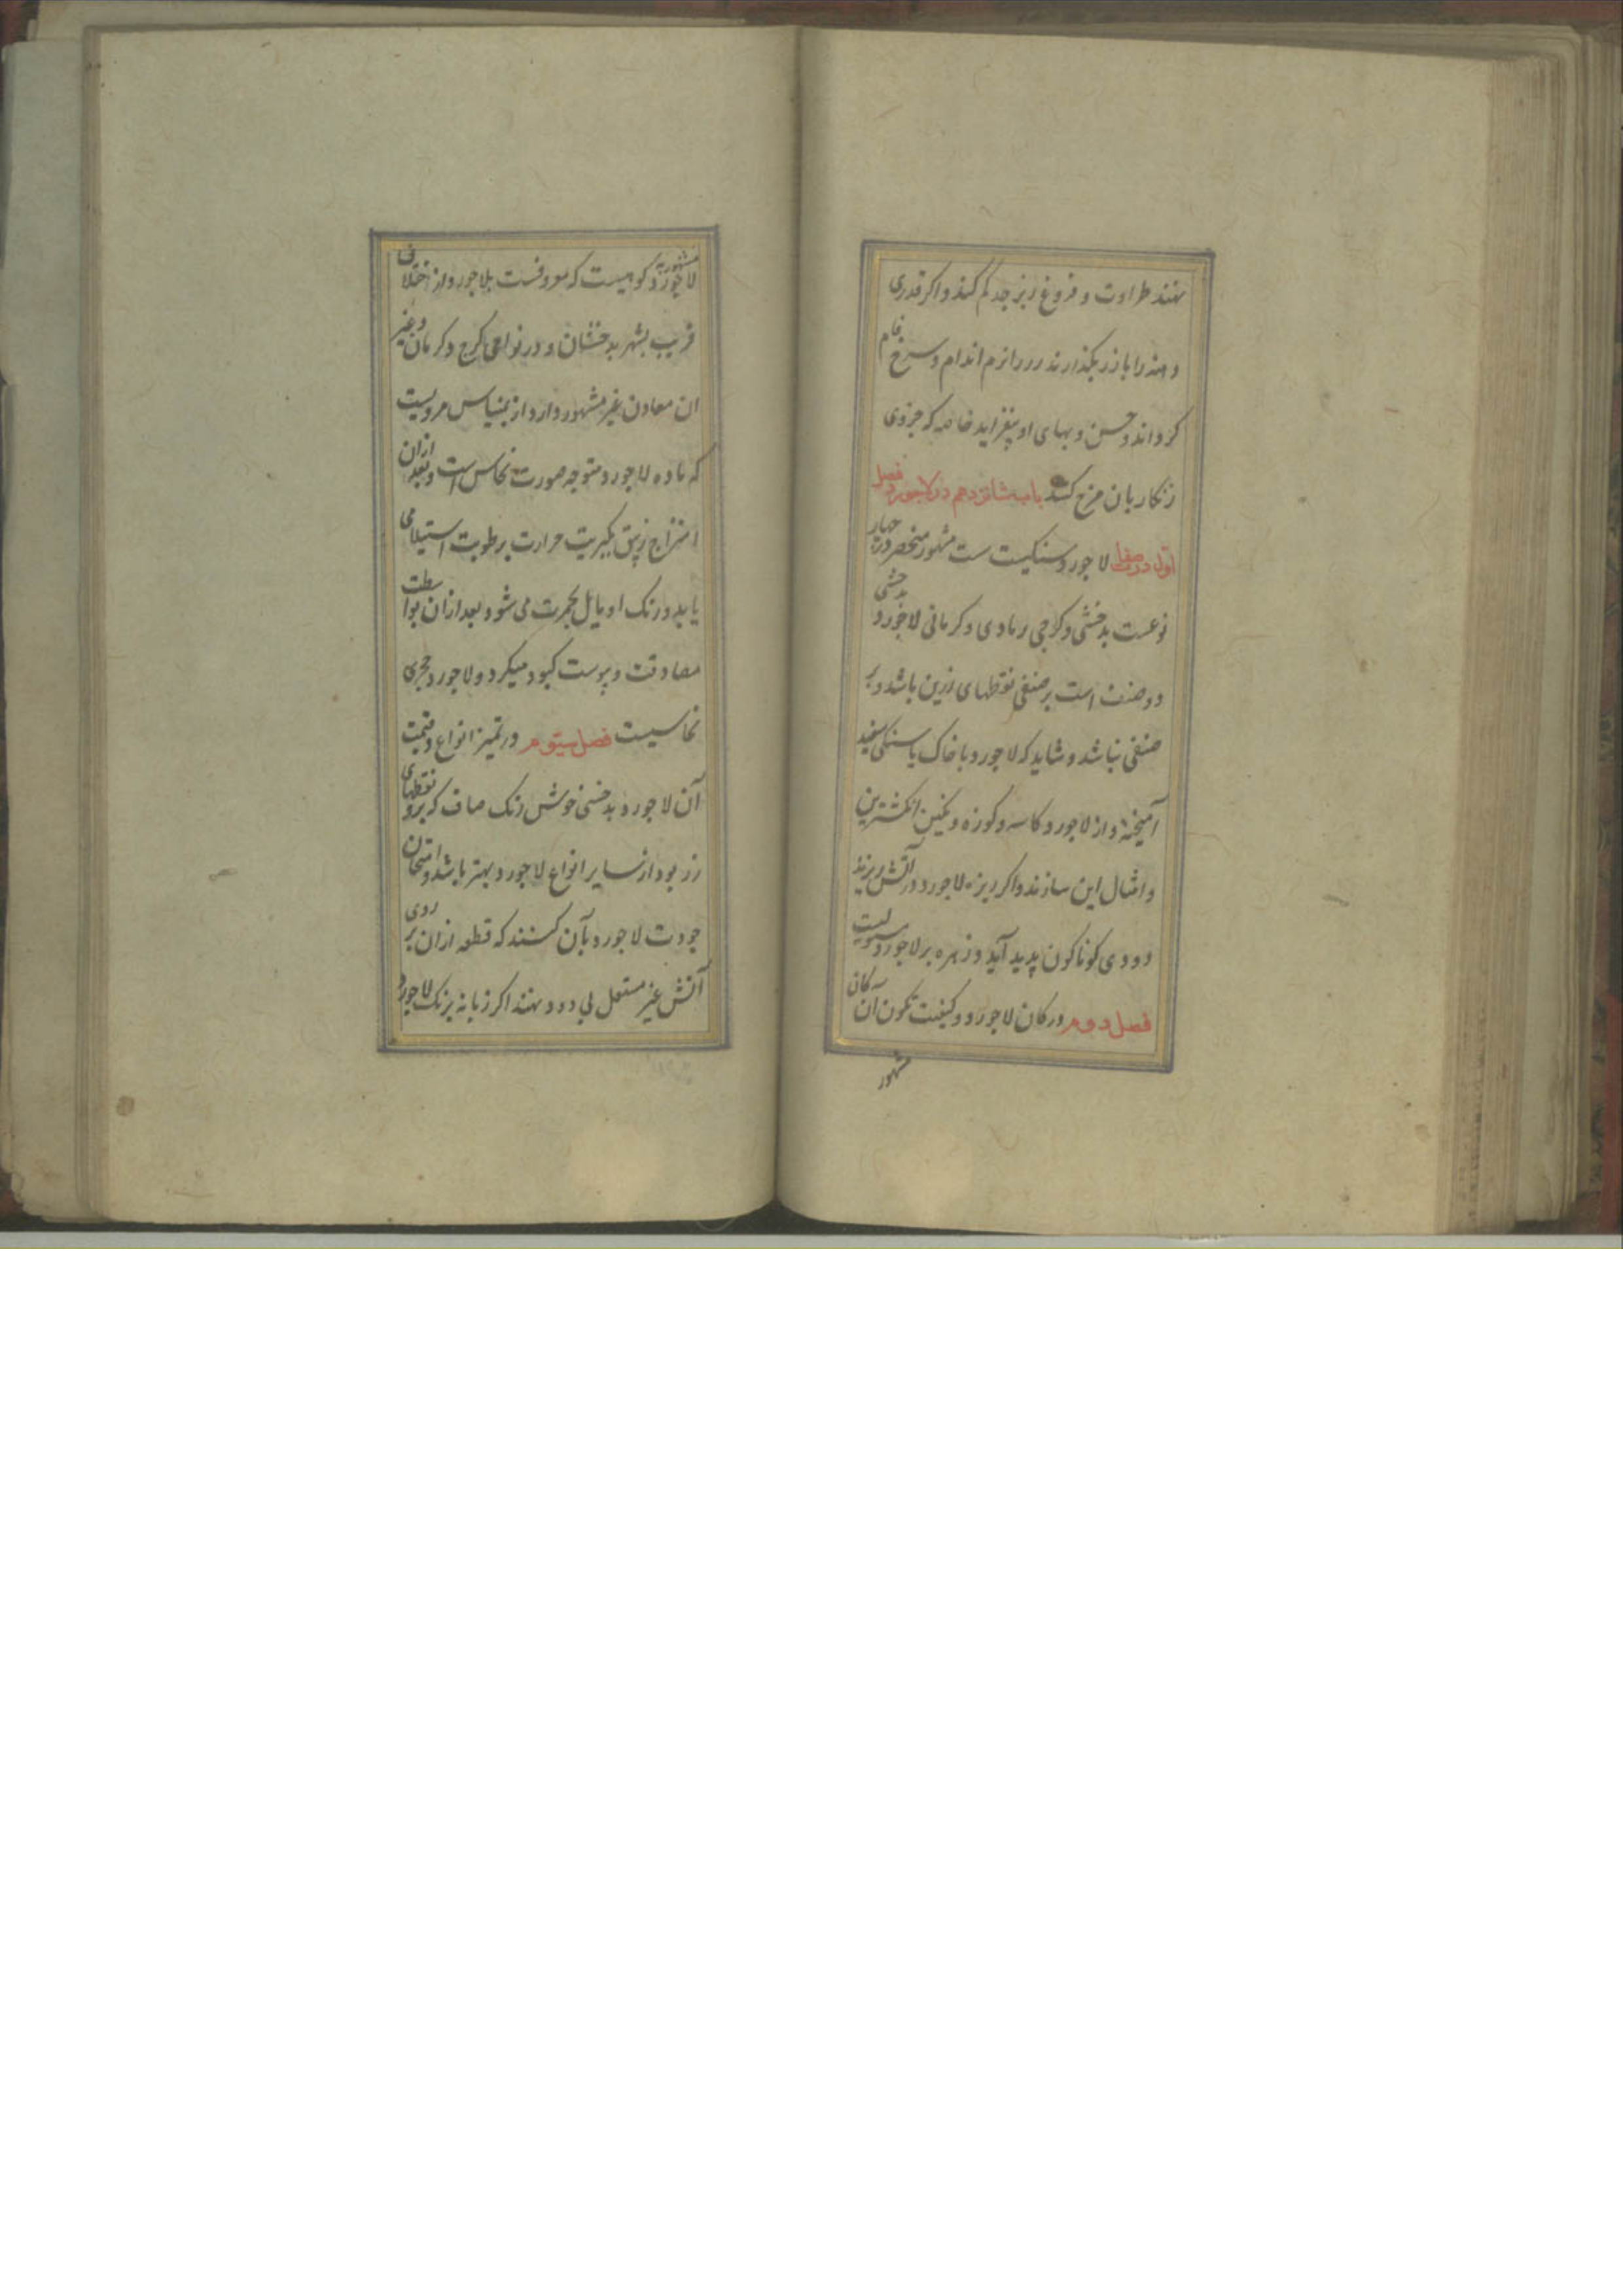 نهند طراوت و فروغ زبرجد کم کند و اکر قدری
دهنه را با زر بکذارند زر را نرم اندام و سرخ فام
کرداند و حسن و بهای او بیفزاید خاصه که جزوی
زنکار بان مزج کنند باب شانزدهم در لاجورد فصل
اول در صفا لاجورد سنکیست ست مشهور منحصر در چهار
نوعست بدخشی و کرجی رمادی و کرمانی لاجورد بدخشی
دو صنف است بر صنفی نقطهای زرین باشد و بر
صنفی نباشد و شاید که لاجورد با خاک یا سنکی سفید
آمیخته و از لاجورد کاسه و کوزه و نکین انکشترین
و امثال این سازند و اکر ریزه لاجورد در آتش ریزند
دودی کوناکون پدید آید و زهره بر لاجورد مستولیست
فصل دوم در کان لاجورد و کیفیت تکون ان کان
مشهور
مشهور لاجورد کوهیست که معروفست بلاجورد و از ختلان
قریب بشهر بدخشان و در نواحی کرج و کرمان و غیر
ان معادن غیر مشهور دارد از بلیناس مرویست
که ماده لاجورد متوجه صورت نحاس است و بعد ازان
امتزاج زیبق بکبریت حرارت برطوبت استیلا می
یابد و رنک او مایل بحمرت می شود بعد ازان بواسطت
مصادقت و یبوست کبود میکردد و لاجورد حجری
نحاسیست فصل سیوم در تمیز انواع و قیمت
آن لاجورد بدخشی خوش رنک صاف که برو نقطهای
زر بود از سایر انواع لاجورد بهتر باشد و امتحان
جودت لاجورد بآن کنند که قطعه ازان بر روی
آتش غیر مشتعل بی دود نهند اکر زبانه برنک لاجورد